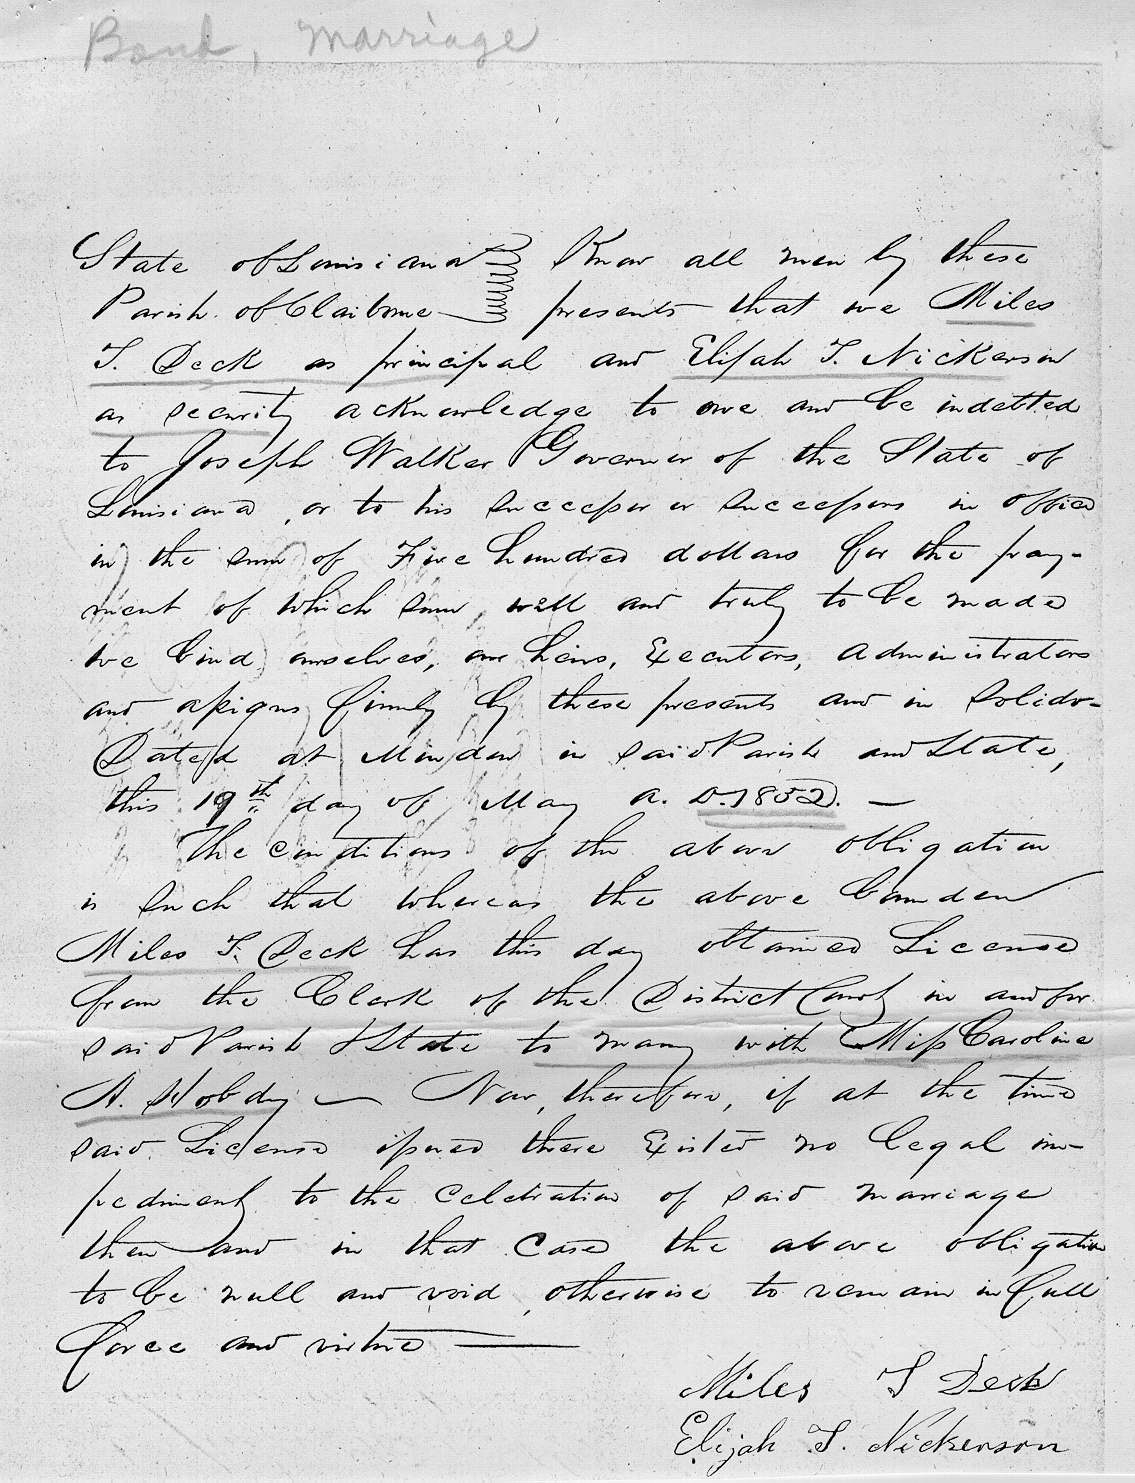 Bond, Marriage
State of Louisiana Know all men by these
Parish of Claiborne presents that we Miles
T. Deck as principal and Elijah T. Nickerson
as security acknowledge to owe and be indebted
to Joseph Walker Governor of the State of
Louisiana, or to his successor or successors in office
in the sum of Five hundred dollars for the pay-
ment of which sum, well and truly to be made
we bind ourselves, our heirs, Executors, Administrators
and assigns firmly by these presents and in Solido-
Dated at Minden in said Parish and State,
this 19th day of May A. D. 1852. —
The conditions of the above obligation
is such that whereas the above bounden
Miles T. Deck has this day obtained License
from the Clerk of the District Court in and for
said Parish & State to marry with Miss Caroline
A. Hobdy — Now, therefore, if at the time
said License issued there Existed no legal im-
pediment to the celebration of said marriage
then and in that case the above obligation
to be null and void, otherwise to remain in full
force and virtue —
Miles T Deck
Elijah T. Nickerson